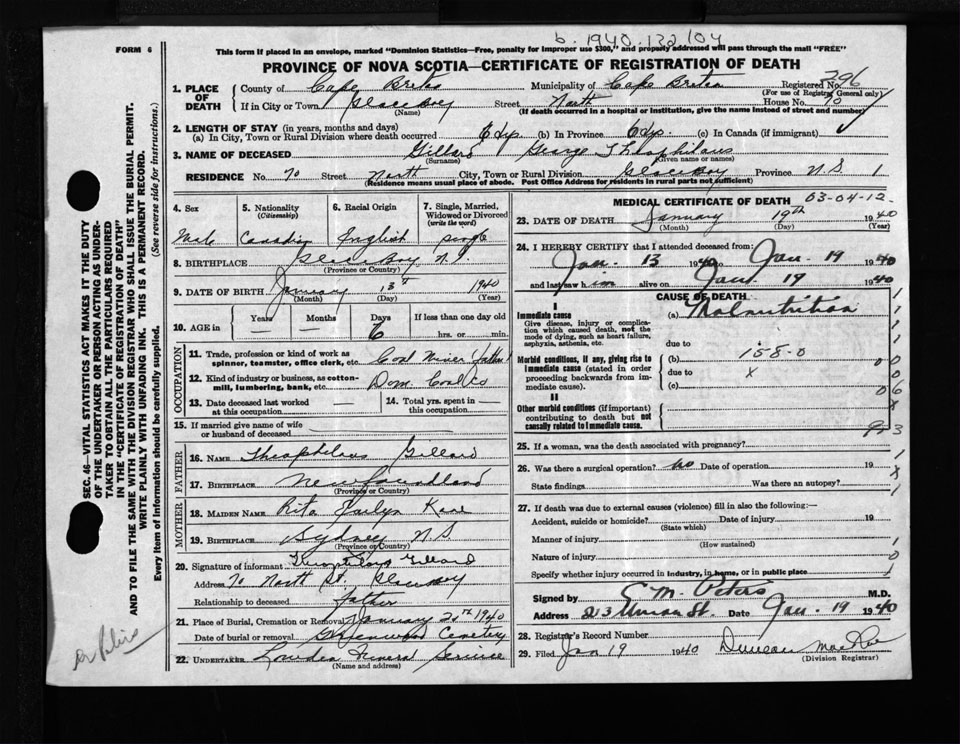 b. 1940. 132104
FORM 6
This form if placed in an envelope, marked "Dominion Statistics—Free, penalty for improper use $300," and properly addressed will pass through the mail "FREE"
PROVINCE OF NOVA SCOTIA—CERTIFICATE OF REGISTRATION OF DEATH
SEC. 46—VITAL STATISTICS ACT MAKES IT THE DUTY
OF THE UNDERTAKER OR PERSON ACTING AS UNDER-
TAKER TO OBTAIN ALL THE PARTICULARS REQUIRED
IN THE "CERTIFICATE OF REGISTRATION OF DEATH"
AND TO FILE THE SAME WITH THE DIVISION REGISTRAR WHO SHALL ISSUE THE BURIAL PERMIT.
WRITE PLAINLY WITH UNFADING INK. THIS IS A PERMANENT RECORD.
Every item of Information should be carefully supplied. (See reverse side for instructions.)
1. PLACE OF DEATH
County of Cape Breton Municipality of Cape Breton Registered No. 296
(For use of Registrar General only)
If in City or Town Glace Bay Street North House No. 70
(Name) (If death occurred in a hospital or institution, give the name instead of street and number)
2. LENGTH OF STAY (in years, months and days)
(a) In City, Town or Rural Division where death occurred 6 dys. (b) In Province 6 dys. (c) In Canada (if immigrant)
3. NAME OF DECEASED Gillard George Theophilus
(Surname) (Given name or names)
RESIDENCE No. 70 Street North City, Town or Rural Division Glace Bay Province N.S. 1
(Residence means usual place of abode. Post Office Address for residents in rural parts not sufficient)
4. Sex 5. Nationality (Citizenship) 6. Racial Origin 7. Single, Married, Widowed or Divorced (write the word)
Male Canadian English single
8. BIRTHPLACE Glace Bay N.S.
(Province or Country)
9. DATE OF BIRTH January 13th 1940
(Month) (Day) (Year)
10. AGE in Years Months Days If less than one day old
— — 6 hrs. or min.
OCCUPATION
11. Trade, profession or kind of work as spinner, teamster, office clerk, etc. Coal Miner (father)
12. Kind of industry or business, as cotton-mill, lumbering, bank, etc. Dom. Coal Co
13. Date deceased last worked at this occupation —
14. Total yrs. spent in this occupation —
15. If married give name of wife or husband of deceased
FATHER
16. NAME Theophilus Gillard
17. BIRTHPLACE Newfoundland
(Province or Country)
MOTHER
18. MAIDEN NAME Rita
19. BIRTHPLACE Sydney N.S.
(Province or Country)
20. Signature of informant Theophilus Gillard
Address 70 North St. Glace Bay
Relationship to deceased father
21. Place of Burial, Cremation or Removal January 20th 1940
Date of burial or removal Greenwood Cemetery
22. UNDERTAKER Funeral Service
(Name and address)
MEDICAL CERTIFICATE OF DEATH 03-04-12
23. DATE OF DEATH January 19th 1940
(Month) (Day) (Year)
24. I HEREBY CERTIFY that I attended deceased from:
Jan. 13 1940 to Jan. 19 1940
and last saw him alive on Jan 19 1940
CAUSE OF DEATH
I
Immediate cause (a) Malnutrition
Give disease, injury or complication which caused death, not the mode of dying, such as heart failure, asphyxia, asthenia, etc.
due to
Morbid conditions, if any, giving rise to immediate cause (stated in order proceeding backwards from immediate cause).
(b) 158-0
due to x
(c)
II
Other morbid conditions (if important) contributing to death but not causally related to immediate cause.
25. If a woman, was the death associated with pregnancy?
26. Was there a surgical operation? No Date of operation 19
State findings Was there an autopsy?
27. If death was due to external causes (violence) fill in also the following:—
Accident, suicide or homicide? Date of injury 19
(State which)
Manner of injury
(How sustained)
Nature of injury
Specify whether injury occurred in industry, in home, or in public place
Signed by E. M. Peters M.D.
Address 213 Union St. Date Jan. 19 1940
28. Registrar's Record Number
29. Filed Jan 19 1940 Duncan MacRae
(Division Registrar)